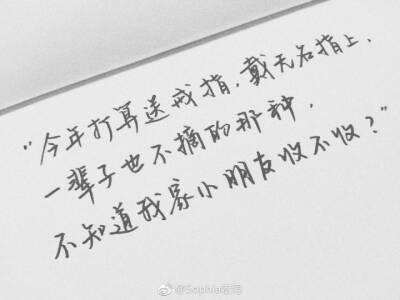 “今年打算送戒指，戴无名指上，
一辈子也不摘的那种，
不知道我家小朋友收不收？”